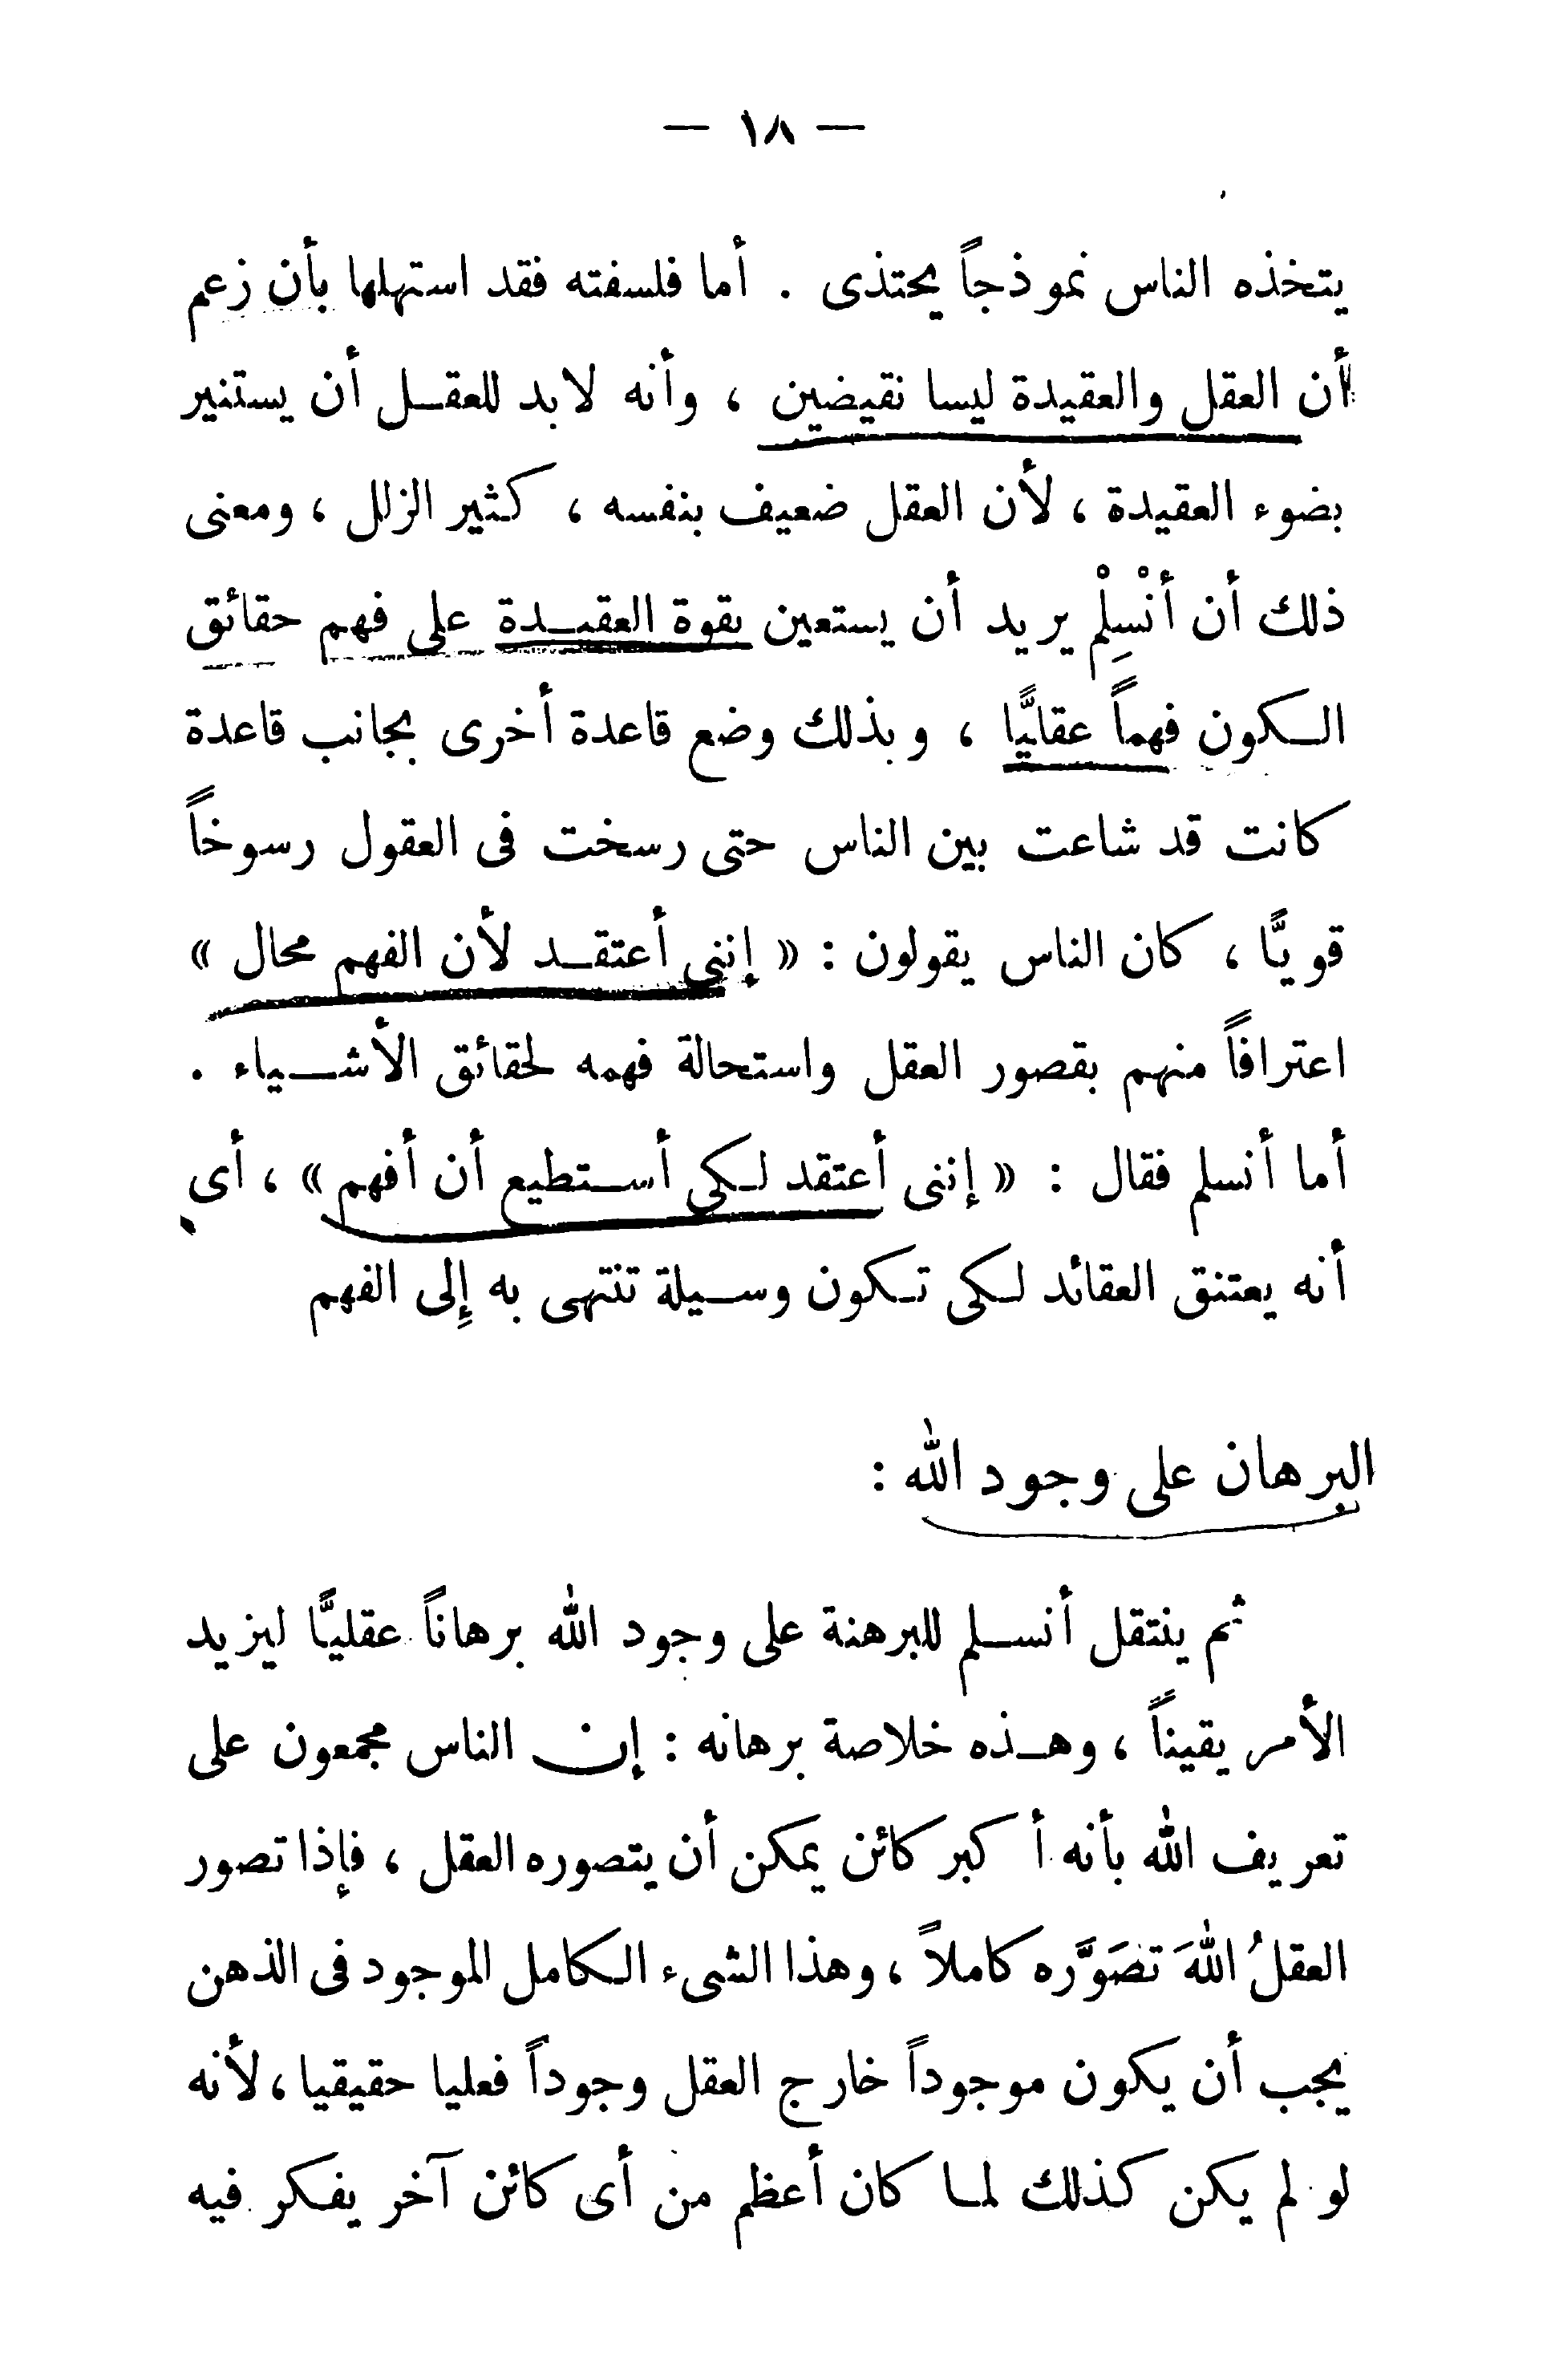 — ١٨ —
يتخذه الناس نموذجاً يحتذى . أما فلسفته فقد استهلها بأن زعم
أن العقل والعقيدة ليسا نقيضين ، وأنه لابد للعقل أن يستنير
بضوء العقيدة ، لأن العقل ضعيف بنفسه ، كثير الزلل ، ومعنى
ذلك أن أنْسِلْم يريد أن يستعين بقوة العقيدة على فهم حقائق
الكون فهماً عقليًّا ، وبذلك وضع قاعدة أخرى بجانب قاعدة
كانت قد شاعت بين الناس حتى رسخت فى العقول رسوخاً
قويًّا ، كان الناس يقولون : « إننى أعتقد لأن الفهم محال »
اعترافاً منهم بقصور العقل واستحالة فهمه لحقائق الأشياء .
أما أنسلم فقال : « إننى أعتقد لكى أستطيع أن أفهم » ، أى
أنه يعتنق العقائد لكى تكون وسيلة تنتهى به إلى الفهم
البرهان على وجود الله :
ثم ينتقل أنسلم للبرهنة على وجود الله برهاناً عقليًّا ليزيد
الأمر يقيناً ، وهذه خلاصة برهانه : إن الناس مجمعون على
تعريف الله بأنه أكبر كائن يمكن أن يتصوره العقل ، فإذا تصور
العقلُ اللهَ تصَوَّره كاملاً ، وهذا الشىء الكامل الموجود فى الذهن
يجب أن يكون موجوداً خارج العقل وجوداً فعليا حقيقيا ، لأنه
لو لم يكن كذلك لما كان أعظم من أى كائن آخر يفكر فيه